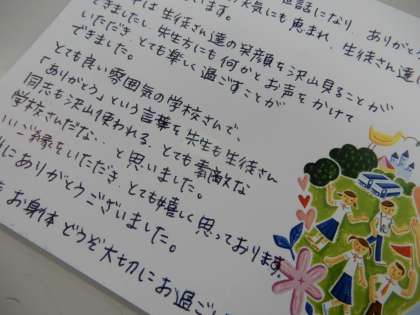 世話になり、ありがと
います。
天気にも恵まれ、生徒さん達
は生徒さん達の笑顔を沢山見ることが
できましたし、先生方にも何かとお声をかけて
いただき、とても楽しく過ごすことが
できました。
とても良い雰囲気の学校さんで、
「ありがとう」という言葉を先生も生徒さん
同志も沢山使われる、とても素敵な
学校さんだな…と思いました。
いいご縁をいただき、とても嬉しく思っております。
にありがとうございました。
お身体どうぞ大切にお過ごし